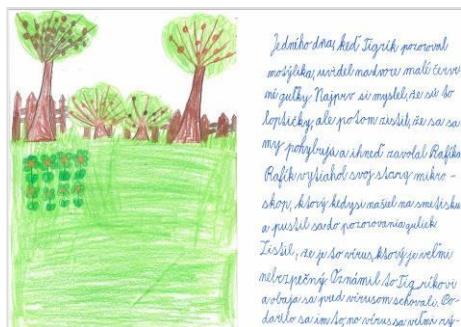 Jedného dňa, keď Tigrík pozoroval
motýlika, uvidel na dvore malé červe-
né guľky. Najprv si myslel, že sú to
loptičky, ale potom zistil, že sa sa-
my pohybujú a ihneď zavolal Rafíka.
Rafík vytiahol svoj starý mikro-
skop, ktorý kedysi našiel na smetisku
a pustil sa do pozorovania guliek.
Zistil, že je to vírus, ktorý je veľmi
nebezpečný. Oznámil to Tigríkovi
a obaja sa pred vírusom schovali. Po-
darilo sa im to, no vírus sa veľmi rý-